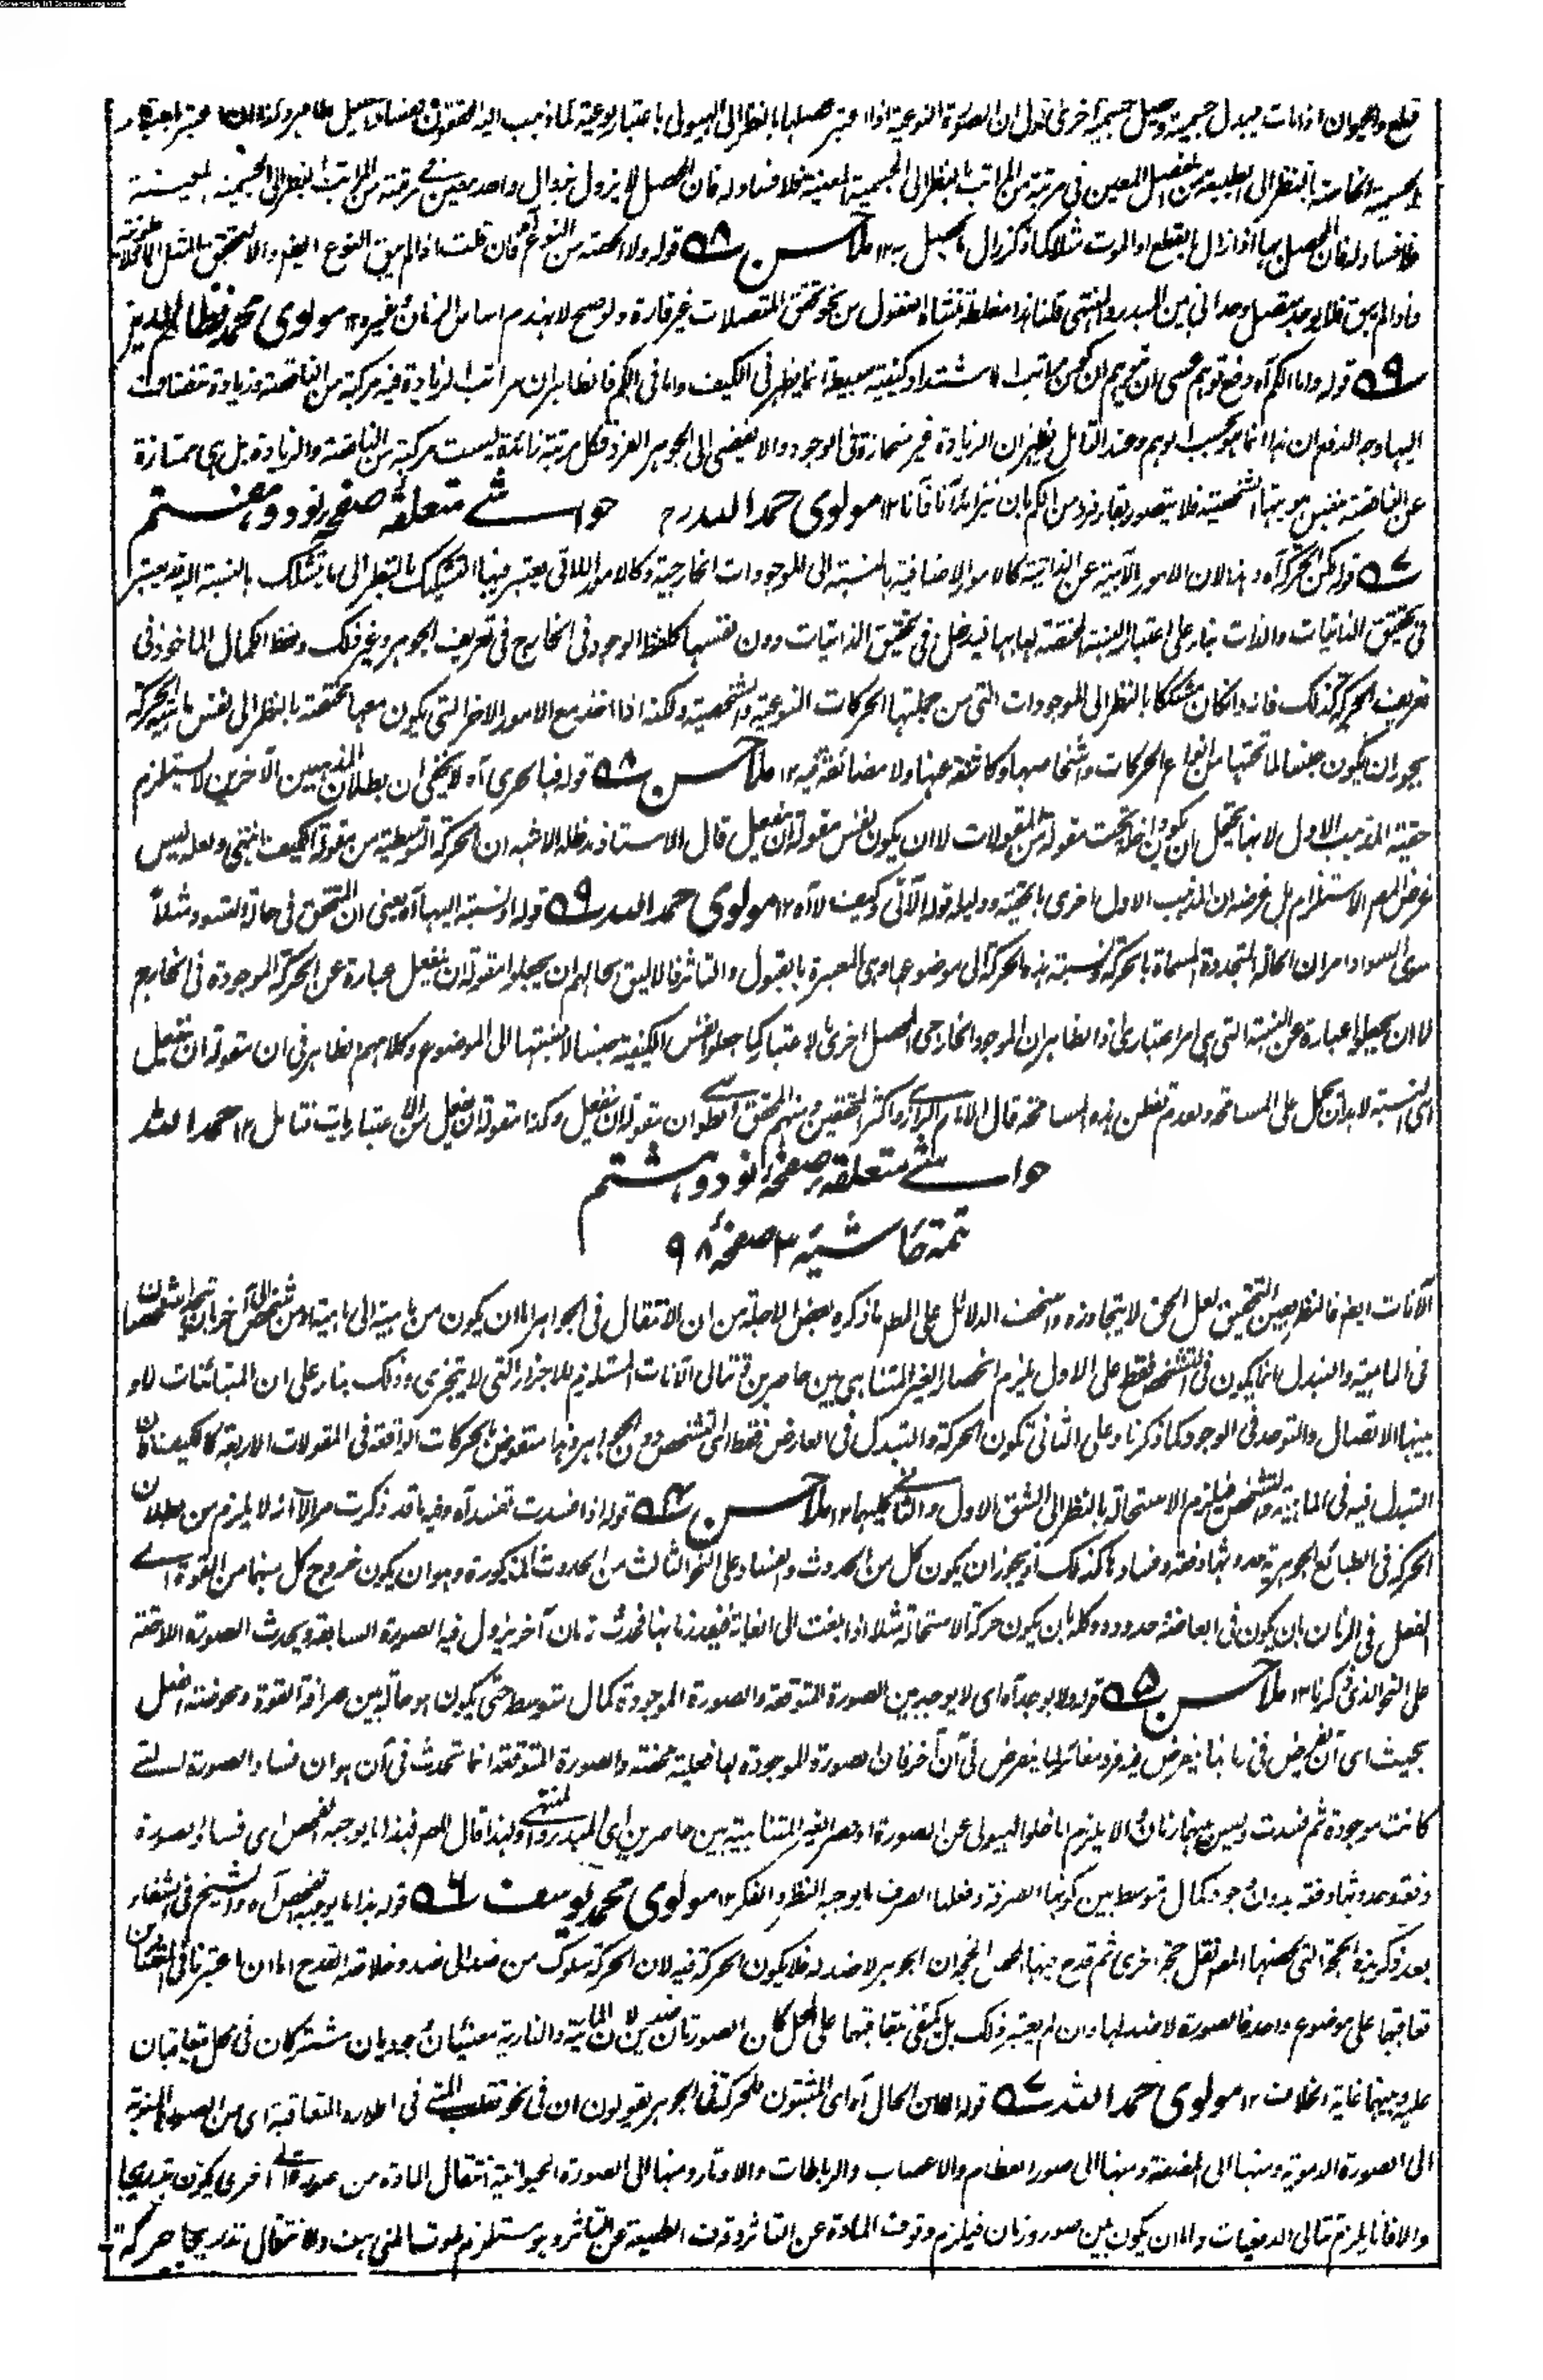 قطع والحيوان اذا مات يبدل جسمية وحصل جسمية اخرى نقول ان الصورة النوعية اذا اعتبر تحصيلها بالنظر الى الهيولى باعتبار نوعية كما ذهب اليه المحققون
الجسمية الخاصة بالنظر الى الطبيعة من المحصل المعين فى مرتبة من المراتب بالنظر الى الجسمية المعينة فلا فساد له فان المحصل لا يزول بزوال واحد معين فى مرتبة من المراتب بالنظر الى الجسمية المعينة
فلا فساد له فان المحصل بها اذا زال بالقطع او الموت مثلا كما ذكر زال ما يحصل به ١٢ ملا حسن ۵۸ قوله ولا حصة من النوع آه فان قلت اذا لم يبق النوع ايضا والا لتحقق المثل الافلاطونية
واذا لم يبق فلا يوجد متصل وحدانى بين المبدء والمنتهى قلنا هذا مغلطة منشاه الغفول من نحو تحقق المتصلات غير قارة ولو صح لانهدم اساس الزمان وغيره ١٢ مولوى محمد نظام الدين
۵۹ قوله واما الكم آه دفع توهم عسى ان يتوهم ان كون مراتب الاشتداد كيفية بسيطة انما يظهر فى الكيف واما فى الكم فالظاهر ان مراتب الزيادة فيه مركبة من الناقصة وزيادة تنضاف
اليها وجه الدفع ان هذا انما هو بحسب الوهم وعند التامل يظهر ان الزيادة غير منحازة فى الوجود والا يفضى الى الجوهر الفرد فكل مرتبة زائدة ليست مركبة من الناقصة والزيادة بل هى ممتازة
عن الناقصة بنفس هويتها الشخصية فلا يتصور بقاء فرد من الكم بان يتزايد آنا فآنا ١٢ مولوى حمد الله رح حواشى متعلقه صفحه نود و هفتم
۵۷ قوله لكن الحركة آه وهذا لان الامور الآبية عن الذاتية كالامور الاضافية بالنسبة الى الموجودات الخارجية وكالامور اللاتى يعتبر فيها التشكيك بالنظر الى ما يتشكك بالنسبة اليه قد يعتبر
فى تحقيق الذاتيات والذات بناء على اعتبار النسبة المحققة لها بها فيدخل فى تحقيق الذاتيات دون نفسها كلفظ الوجود فى الخارج فى تعريف الجوهر وغير ذلك ولفظ الكمال الماخوذ فى
تعريف الحركة كذلك فانه وان كان مشككا بالنظر الى الموجودات التى من جملتها الحركات النوعية والشخصية ولكنه اذا اخذ مع الامور الاخر التى يكون معها مختصة بالنظر الى نفس ماهية الحركة
يجوز ان يكون جنسا لما تحتها من انواع الحركات واشخاصها وكاشفة عنها ولا مضائقة فيه ١٢ ملا حسن ۵۸ قوله فبالحرى آه لا يخفى ان بطلان المذهبين الآخرين لا يستلزم
حقية المذهب الاول لانها يحتمل ان يكون داخلة تحت مقولة من المقولات لا ان يكون نفس مقولة ان ينفعل قال الاستاذ مد ظله الاشبه ان الحركة التوسطية من مقولة الكيف انتهى ولعله ليس
غرض المصم الاستلزام بل غرضه ان المذهب الاول احرى بالحقية ودليله قوله الآتى وكيف لا آه ١٢ مولوى حمد الله ۵۹ قوله او نسبته اليها آه يعنى ان المتحقق فى حالة التسود مثلا
سوى السواد امران الحالة المتجددة المسماة بالحركة ونسبة هذه الحركة الى موضوعها وهى المعبرة بالقبول والتاثر فالاليق بحالهم ان يجعلوا مقولة ان ينفعل عبارة عن الحركة الموجودة فى الخارج
لا ان يجعلوا عبارة عن النسبة التى هى امر اعتبارى اذ الظاهر ان الموجود الخارجى المحصل احرى بالاعتبار كما جعلوا نفس الكيفية جنسا لا نسبتها الى الموضوع وكلامهم الظاهر فى ان مقولة ان ينفعل
هى النسبة لا بد ان يحمل على المسامحة ولعدم تفطن بهذه المسامحة قال الامام الرازى واكثر المحققين ومنهم المحقق الطوسى ان مقولة ان ينفعل وكذا مقولة ان يفعل من الاعتباريات فتامل ١٢ حمد الله
حواشى متعلقه صفحه نود و هشتم
تتمه حاشيه ٣ صفحه ٩٨
الآنات ايضا فالنظر بعين التحقيق لعل الحق لا يتجاوزه واسخف الدلائل على المطم ما ذكره بعض الاجلة من ان الانتقال فى الجواهر اما ان يكون من ماهية الى ماهية او من شخص الى آخر
فى الماهية والتبدل انما يكون فى التشخص فقط على الاول يلزم انحصار الغير المتناهى بين حاصرين وتتالى الآنات المستلزم للاجزاء التى لا يتجزى وذلك بناء على ان المتبائنات لا
بينها الاتصال والتوحد فى الوجود كما ذكرنا وعلى الثانى تكون الحركة والتبدل فى العارض فقط اى التشخص دون الجواهر وهذا منقوض بالحركات الواقعة فى المقولات الاربعة كالكيف
التبدل فيه فى الماهية والتشخص فيلزم الاستحالة بالنظر الى الشق الاول والثانى كليهما ١٢ ملا حسن ۵۴ قوله اذا فسدت تفسد آه وفيه ما قد ذكرت مرارا انه لا يلزم من بطلان
الحركة فى الطبائع الجوهرية حدوثها دفعة وفسادها كذلك اذ يجوز ان يكون كل من الحدوث والفساد على النحو الثالث من الحدوث المذكورة وهو ان يكون خروج كل منهما من القوة الى
الفعل فى الزمان بان يكون فى ابعاضه حدوده وكله بان يكون حركة الاستحالة مثلا اذا بلغت الى الغاية فبعد زمانها فحدث زمان آخر يزول فيه الصورة السابقة ويحدث الصورة اللاحقة
على النحو الذى ذكرنا ١٢ ملا حسن ۵۵ قوله ولا يوجد آه اى لا يوجد بين الصورة المتوقعة والصورة الموجودة كمال متوسط حتى يكون هو حالة بين صرافة القوة ومحوضة الفعل
بحيث اى آن يفرض فى زمانها يفرض فيه فرد مغائر لما يفرض فى آن آخر فان الصورة الموجودة لها فعلية محضة والصورة المتوقعة انما تحدث فى آن هو ان فساد الصورة التى
كانت موجودة ثم فسدت وليس بينهما زمان والا يلزم اما خلو الهيولى عن الصورة او حصر الغير المتناهية بين حاصرين اى المبدء والمنتهى ولهذا قال المصم فهذا ما يوجبه الفحص اى فساد الصورة
دفعة وحدوثها دفعة بدون وجود كمال متوسط بين كونها الصرفة وفعلها الصرف ما يوجبه النظر والفكر ١٢ مولوى محمد يوسف ۵۶ قوله هذا ما يوجبه الفحص آه والشيخ فى الشفاء
بعد ذكر هذه الحجة التى لخصها المصم نقل حجة اخرى ثم قدح فيها محصل الحجة ان الجوهر لا ضد له فلا يكون الحركة فيه لان الحركة سلوك من ضد الى ضد وخلاصة القدح اما ان اعتبرنا فى المتضادين
تعاقبهما على موضوع واحد فالصورة لا ضد لها وان لم يعتبر ذلك بل يكتفى بتعاقبهما على المحل كان الصورتان ضدين لان المائية والنارية معنيان وجوديان مشتركان فى محل يتعاقبان
عليه وبينهما غاية الخلاف ١٢ مولوى حمد الله ۵۷ قوله ومن الحال آه اى المثبتون للحركة فى الجوهر يقولون ان فى نحو تقلب المنى فى اطواره المتعاقبة اى من الصورة المنوية
الى الصورة الدموية ومنها الى المضغة ومنها الى صور العظام والاعصاب والرباطات والاوتار ومنها الى الصورة الحيوانية انتقال المادة من صورة الى اخرى يكون تدريجا
والا فاما يلزم تتالى الدفعيات واما ان يكون بين صور زمان فيلزم وقوف المادة عن التاثر وقوف الطبيعة عن التاثر وهو مستلزم لموت المنى هف والانتقال تدريجا حركة